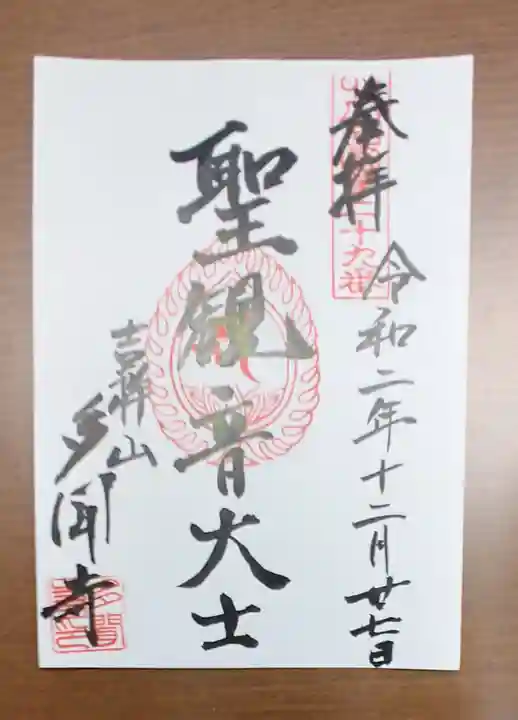 奉拝
令和二年十二月廿七日
聖観音大士
吉祥山
多聞寺